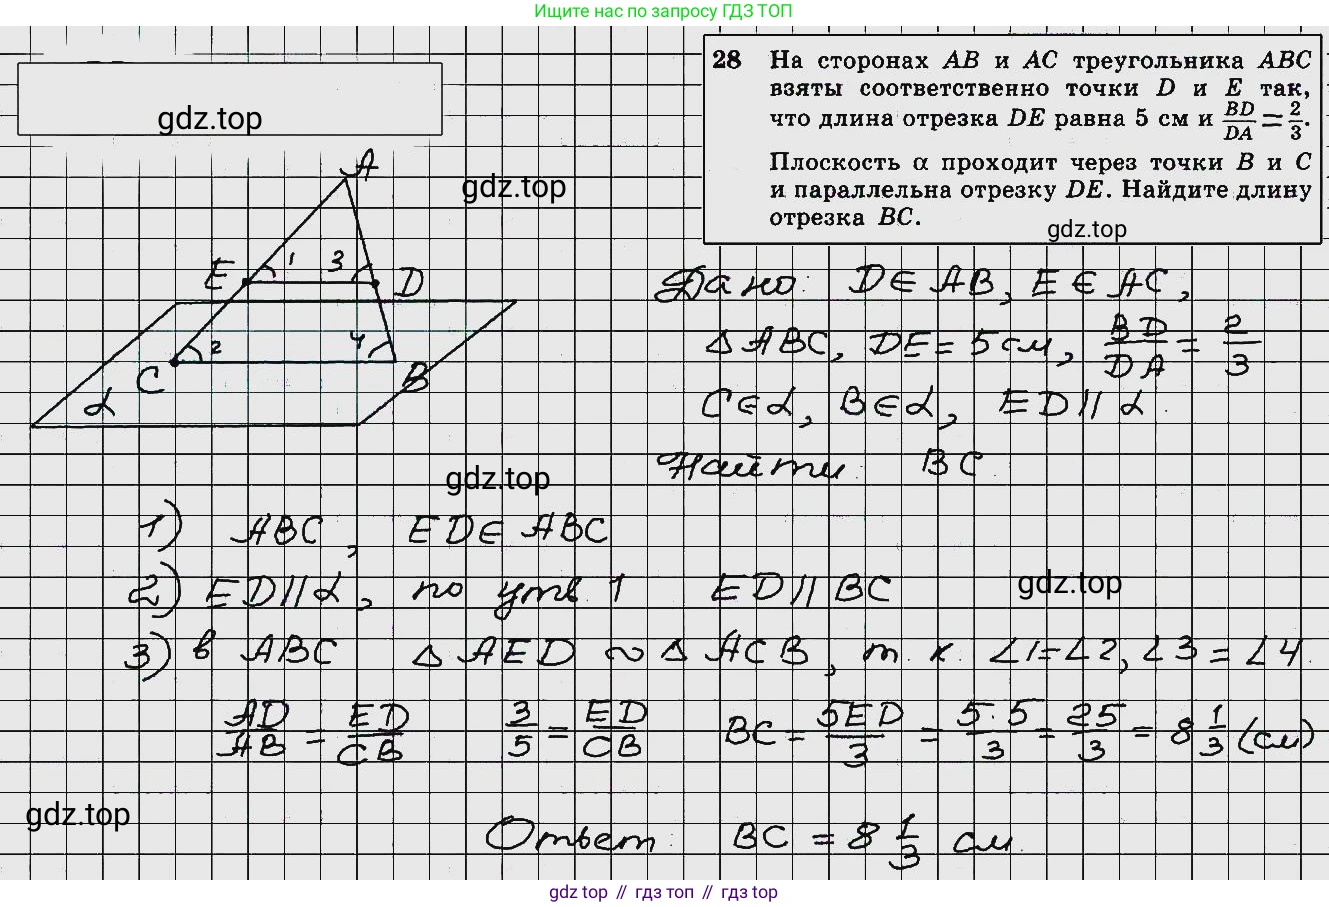 Ищите нас по запросу ГДЗ ТОП
28 На сторонах AB и AC треугольника ABC
взяты соответственно точки D и E так,
что длина отрезка DE равна 5 см и BD/DA = 2/3.
Плоскость α проходит через точки B и C
и параллельна отрезку DE. Найдите длину
отрезка BC.
gdz.top
gdz.top
gdz.top
A
E 1 3 D
C 2 4 B
α
Дано: D ∈ AB, E ∈ AC,
Δ ABC, DE = 5 см, BD/DA = 2/3
C ∈ α, B ∈ α, ED || α.
Найти BC
gdz.top
1) ABC, ED ∈ ABC
2) ED || α, по утв 1 ED || BC
gdz.top
3) в ABC Δ AED ∾ Δ ACB, т. к. ∠1=∠2, ∠3 = ∠4.
AD/AB = ED/CB 3/5 = ED/CB BC = 5ED/3 = 5·5/3 = 25/3 = 8 1/3 (см)
gdz.top
Ответ: BC = 8 1/3 см.
gdz top // гдз топ // gdz top